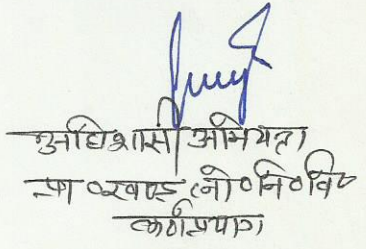 अधिशासी अभियन्ता
प्रा०खण्ड लो०नि०वि०
कर्णप्रयाग